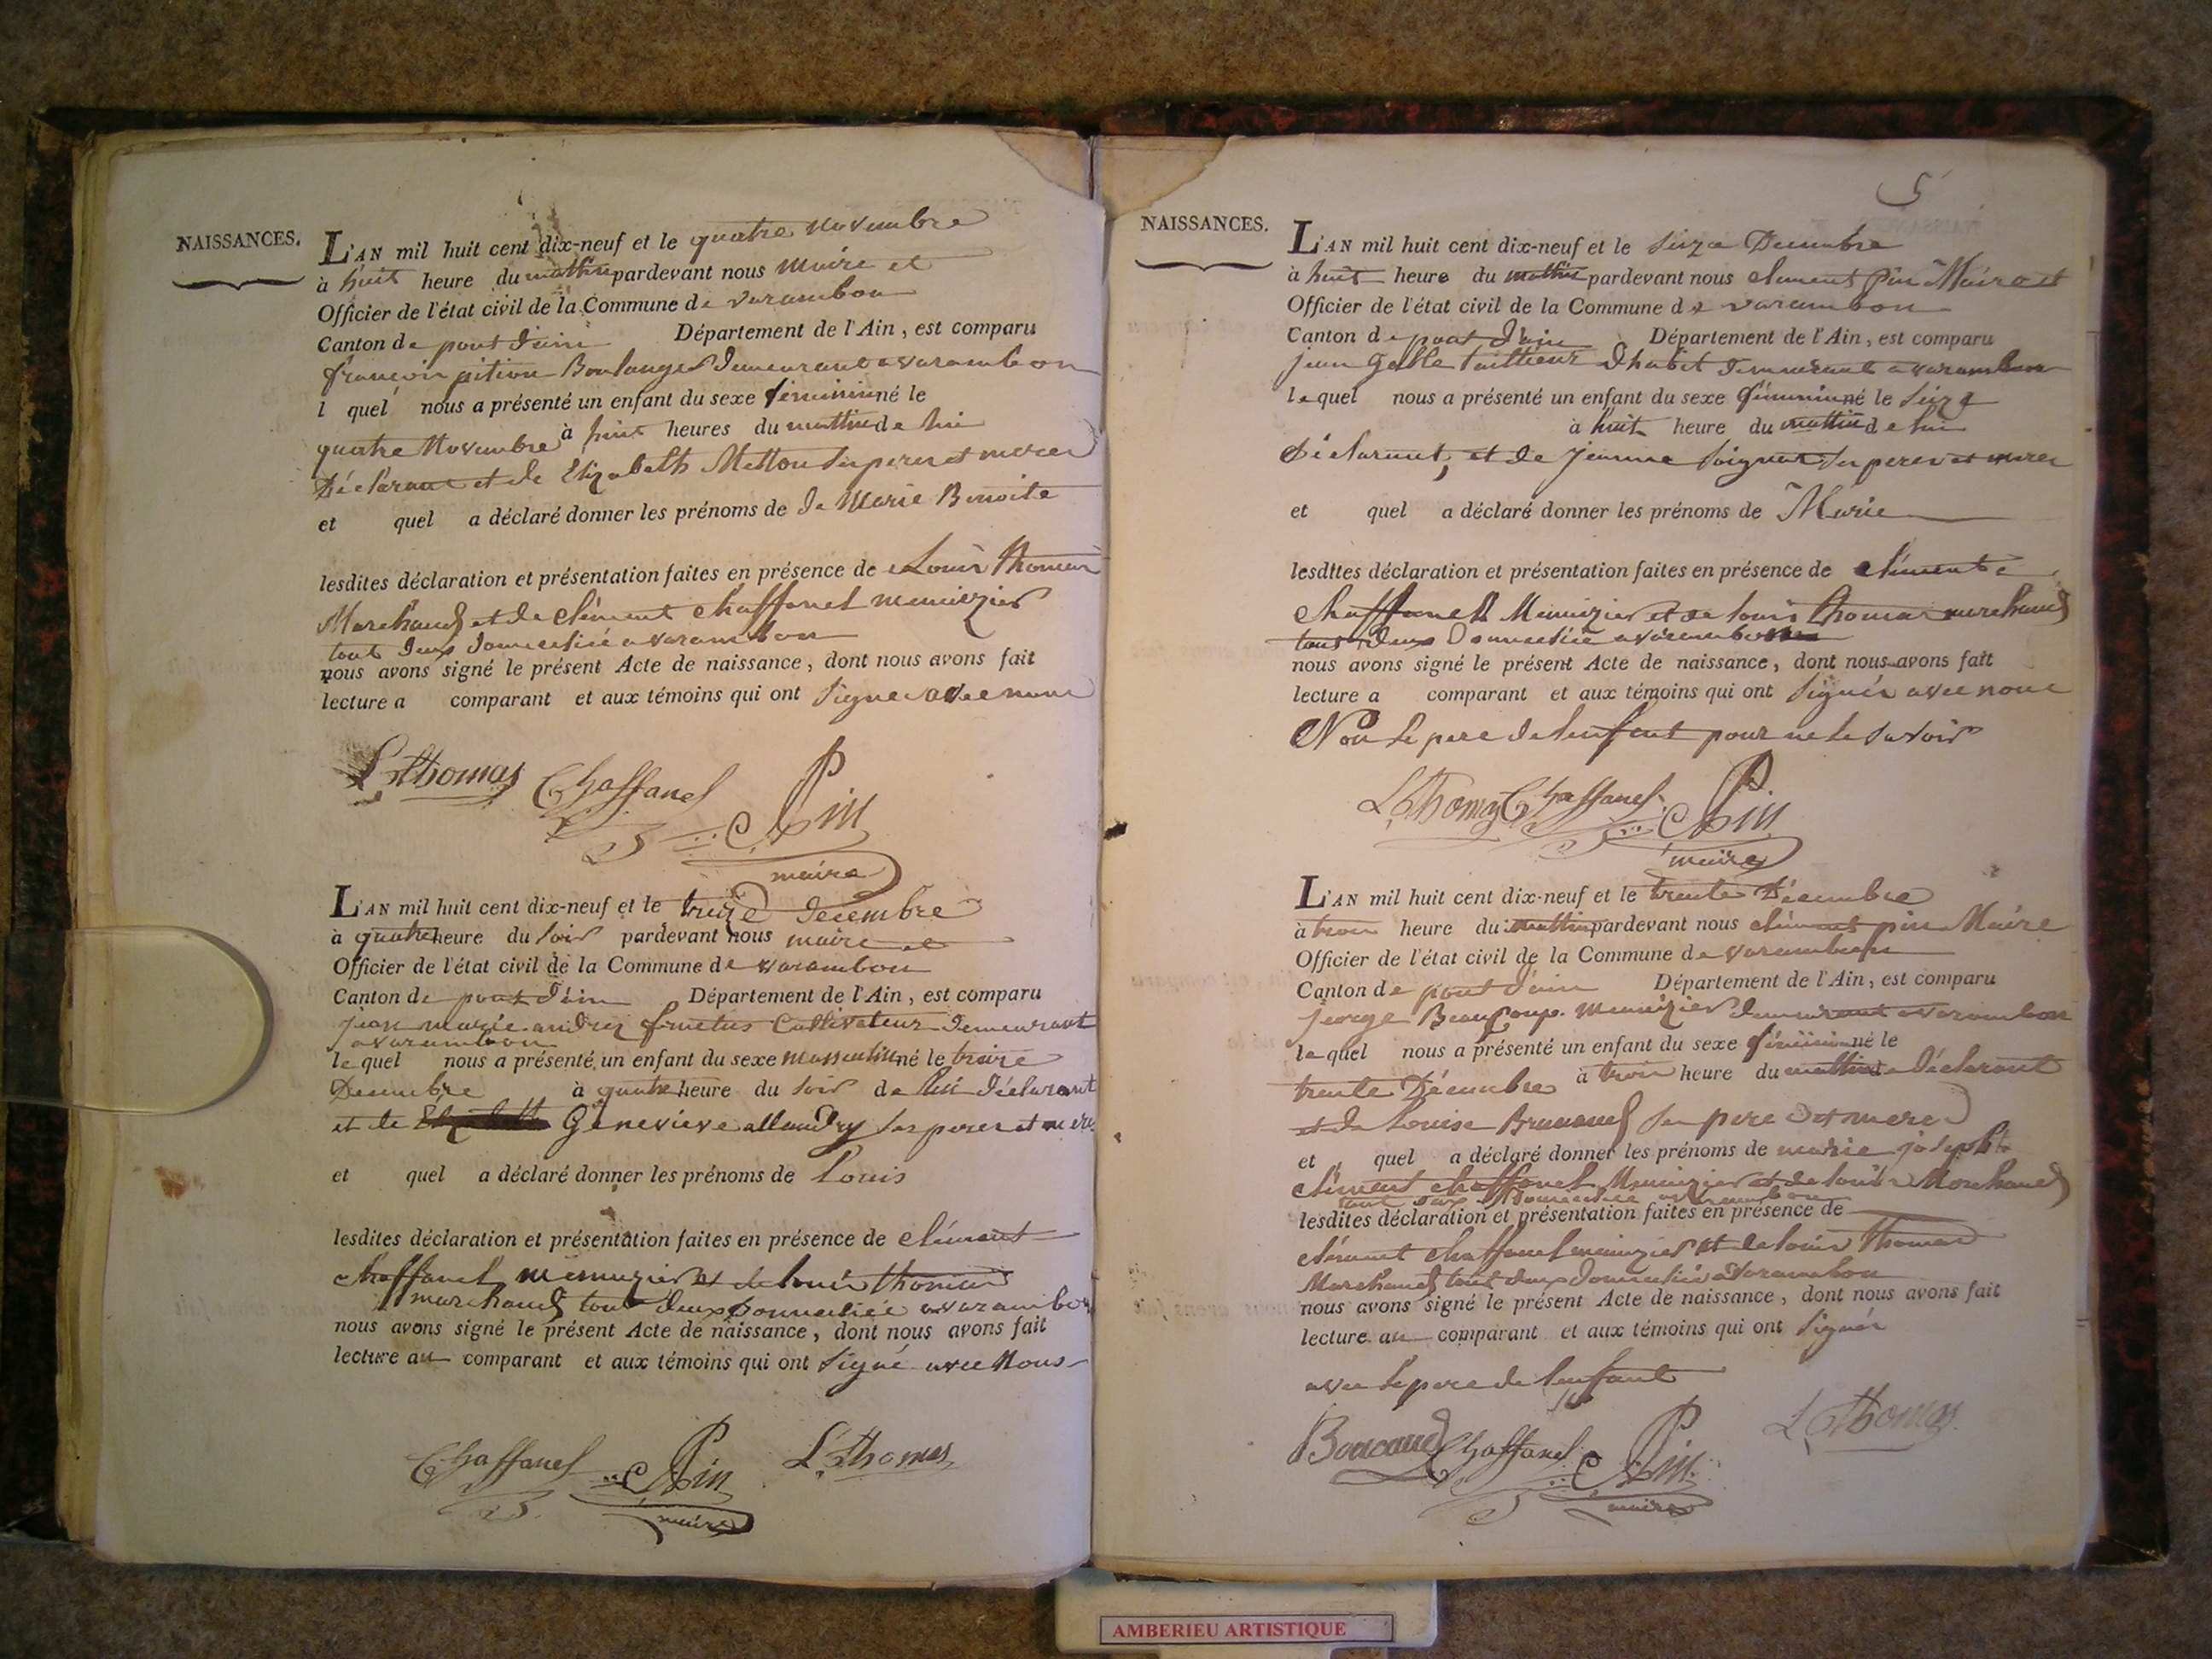 NAISSANCES.
L'AN mil huit cent dix-neuf et le quatre novembre
à huit heure du mattin pardevant nous maire et
Officier de l'état civil de la Commune de varambon
Canton de pont d'ain Département de l'Ain, est comparu
françois pition Boulanger demeurant a varambon
l quel nous a présenté un enfant du sexe féminin né le
quatre Novembre à huit heures du mattin de lui
Déclarant et de Elizabeth Metton ses peres et meres
et quel a déclaré donner les prénoms de de Marie Benoite
lesdites déclaration et présentation faites en présence de Louis thomas
Marchand et de clément chaffanel menuizier
tout deux domicilié a varambon
nous avons signé le présent Acte de naissance, dont nous avons fait
lecture a comparant et aux témoins qui ont signé avec nous
L. Thomas Chaffanel C Pin
maire
L'AN mil huit cent dix-neuf et le treize decembre
à quatre heure du soir pardevant nous maire et
Officier de l'état civil de la Commune de varambon
Canton de pont d'ain Département de l'Ain, est comparu
jean marie andrez fructus Cultivateur demeurant
a varambon
le quel nous a présenté un enfant du sexe masculin né le treize
Decembre à quatre heure du soir de lui déclarant
et de Genevieve allandry ses peres et mere
et quel a déclaré donner les prénoms de Louis
lesdites déclaration et présentation faites en présence de clément
chaffanel menuizier et de louis thomas
marchand tout deux domicilié a varambon
nous avons signé le présent Acte de naissance, dont nous avons fait
lecture au comparant et aux témoins qui ont signé avec Nous
Chaffanel C Pin L. Thomas
maire
5
NAISSANCES.
L'AN mil huit cent dix-neuf et le seize Decembre
à huit heure du mattin pardevant nous clement pin Maire et
Officier de l'état civil de la Commune de varambon
Canton de pont d'ain Département de l'Ain, est comparu
jean Gallle tailleur d'habit demeurant a varambon
le quel nous a présenté un enfant du sexe féminin né le seize
à huit heure du mattin de lui
Déclarant, et de jeanne soignar ses peres et meres
et quel a déclaré donner les prénoms de Marie
lesdites déclaration et présentation faites en présence de clément
chaffanel Menuizier et de louis thomas marchand
tous deux Domicilié a varambon
nous avons signé le présent Acte de naissance, dont nous avons fait
lecture a comparant et aux témoins qui ont signés avec nous
Non le pere de lenfant pour ne le savoir
L. Thomas Chaffanel C Pin
maire
L'AN mil huit cent dix-neuf et le trente Décembre
à trois heure du mattin pardevant nous clément pin Maire
Officier de l'état civil de la Commune de varambon
Canton de pont d'ain Département de l'Ain, est comparu
jeorge Beaucoup menuizier demeurant a varambon
le quel nous a présenté un enfant du sexe féminin né le
trente Décembre à trois heure du mattin de déclarant
et de Louise Brunand ses pere et mere
et quel a déclaré donner les prénoms de marie joseph
clément chaffanel Menuizier et de louis Marchand
tout deux Domicilié a varambon
lesdites déclaration et présentation faites en présence de
clément chaffanel menuizier et de louis thomas
Marchand tout deux domicilié a varambon
nous avons signé le présent Acte de naissance, dont nous avons fait
lecture au comparant et aux témoins qui ont signés
avec le pere de lenfant
Boucaud Chaffanel C Pin L. Thomas
maire
AMBERIEU ARTISTIQUE